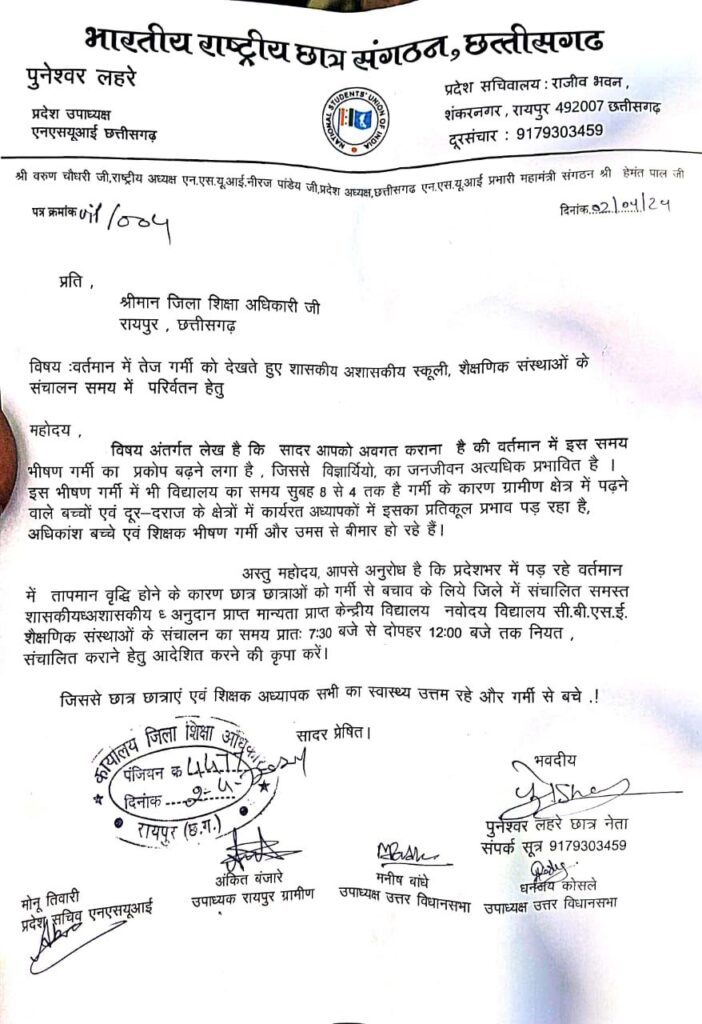 भारतीय राष्ट्रीय छात्र संगठन, छत्तीसगढ
पुनेश्वर लहरे
प्रदेश उपाध्यक्ष
एनएसयूआई छत्तीसगढ़
NATIONAL STUDENTS' UNION OF INDIA
प्रदेश सचिवालय : राजीव भवन ,
शंकरनगर , रायपुर 492007 छत्तीसगढ़
दूरसंचार : 9179303459
श्री वरुण चौधरी जी,राष्ट्रीय अध्यक्ष एन.एस.यू.आई.नीरज पांडेय जी,प्रदेश अध्यक्ष,छत्तीसगढ एन.एस.यू.आई प्रभारी महामंत्री संगठन श्री हेमंत पाल जी
पत्र क्रमांक /004
दिनांक 02/04/24
प्रति ,
श्रीमान जिला शिक्षा अधिकारी जी
रायपुर , छत्तीसगढ़
विषय :वर्तमान में तेज गर्मी को देखते हुए शासकीय अशासकीय स्कूली, शैक्षणिक संस्थाओं के
संचालन समय में परिर्वतन हेतु
महोदय ,
विषय अंतर्गत लेख है कि सादर आपको अवगत कराना है की वर्तमान में इस समय
भीषण गर्मी का प्रकोप बढ़ने लगा है , जिससे विज्ञार्यियो, का जनजीवन अत्यधिक प्रभावित है ।
इस भीषण गर्मी में भी विद्यालय का समय सुबह 8 से 4 तक है गर्मी के कारण ग्रामीण क्षेत्र में पढ़ने
वाले बच्चों एवं दूर–दराज के क्षेत्रों में कार्यरत अध्यापकों में इसका प्रतिकूल प्रभाव पड़ रहा है,
अधिकांश बच्चे एवं शिक्षक भीषण गर्मी और उमस से बीमार हो रहे हैं।
अस्तु महोदय, आपसे अनुरोध है कि प्रदेशभर में पड़ रहे वर्तमान
में तापमान वृद्धि होने के कारण छात्र छात्राओं को गर्मी से बचाव के लिये जिले में संचालित समस्त
शासकीयध्अशासकीय ध् अनुदान प्राप्त मान्यता प्राप्त केन्द्रीय विद्यालय नवोदय विद्यालय सी.बी.एस.ई.
शैक्षणिक संस्थाओं के संचालन का समय प्रातः 7:30 बजे से दोपहर 12:00 बजे तक नियत ,
संचालित कराने हेतु आदेशित करने की कृपा करें।
जिससे छात्र छात्राएं एवं शिक्षक अध्यापक सभी का स्वास्थ्य उत्तम रहे और गर्मी से बचे .!
सादर प्रेषित।
कार्यालय जिला शिक्षा अधिकारी
पंजियन क
दिनांक
रायपुर (छ.ग.)
भवदीय
पुनेश्वर लहरे छात्र नेता
संपर्क सूत्र 9179303459
मोनू तिवारी
प्रदेश सचिव एनएसयूआई
अंकित बंजारे
उपाध्यक रायपुर ग्रामीण
मनीष बांधे
उपाध्यक्ष उत्तर विधानसभा
धनंजय कोसले
उपाध्यक्ष उत्तर विधानसभा